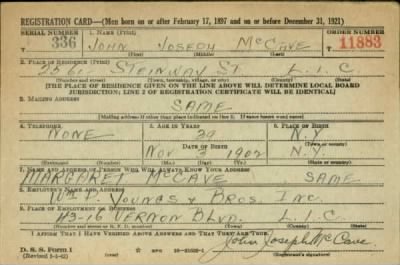 REGISTRATION CARD—(Men born on or after February 17, 1897 and on or before December 31, 1921)
SERIAL NUMBER 1. NAME (Print) ORDER NUMBER
336 JOHN JOSEPH McCAVE 11883
(First) (Middle) (Last)
2. PLACE OF RESIDENCE (Print)
STEINWAY ST L.I.C.
(Number and street) (Town, township, village, or city) (County) (State)
[THE PLACE OF RESIDENCE GIVEN ON THE LINE ABOVE WILL DETERMINE LOCAL BOARD
JURISDICTION; LINE 2 OF REGISTRATION CERTIFICATE WILL BE IDENTICAL]
3. MAILING ADDRESS
SAME
[Mailing address if other than place indicated on line 2. If same insert word same]
4. TELEPHONE 5. AGE IN YEARS 6. PLACE OF BIRTH
NONE 39 N.Y.
DATE OF BIRTH (Town or county)
NOV 3 1902 N.Y.
(Exchange) (Number) (Mo.) (Day) (Yr.) (State or country)
7. NAME AND ADDRESS OF PERSON WHO WILL ALWAYS KNOW YOUR ADDRESS
MARGARET McCAVE SAME
8. EMPLOYER'S NAME AND ADDRESS
WM P. YOUNGS & BROS. INC.
9. PLACE OF EMPLOYMENT OR BUSINESS
43-16 VERNON BLVD. L.I.C.
(Number and street or R. F. D. number) (Town) (County) (State)
I AFFIRM THAT I HAVE VERIFIED ABOVE ANSWERS AND THAT THEY ARE TRUE.
D. S. S. Form 1
(Revised 1-1-42) GPO 16-21630-1
John Joseph McCave